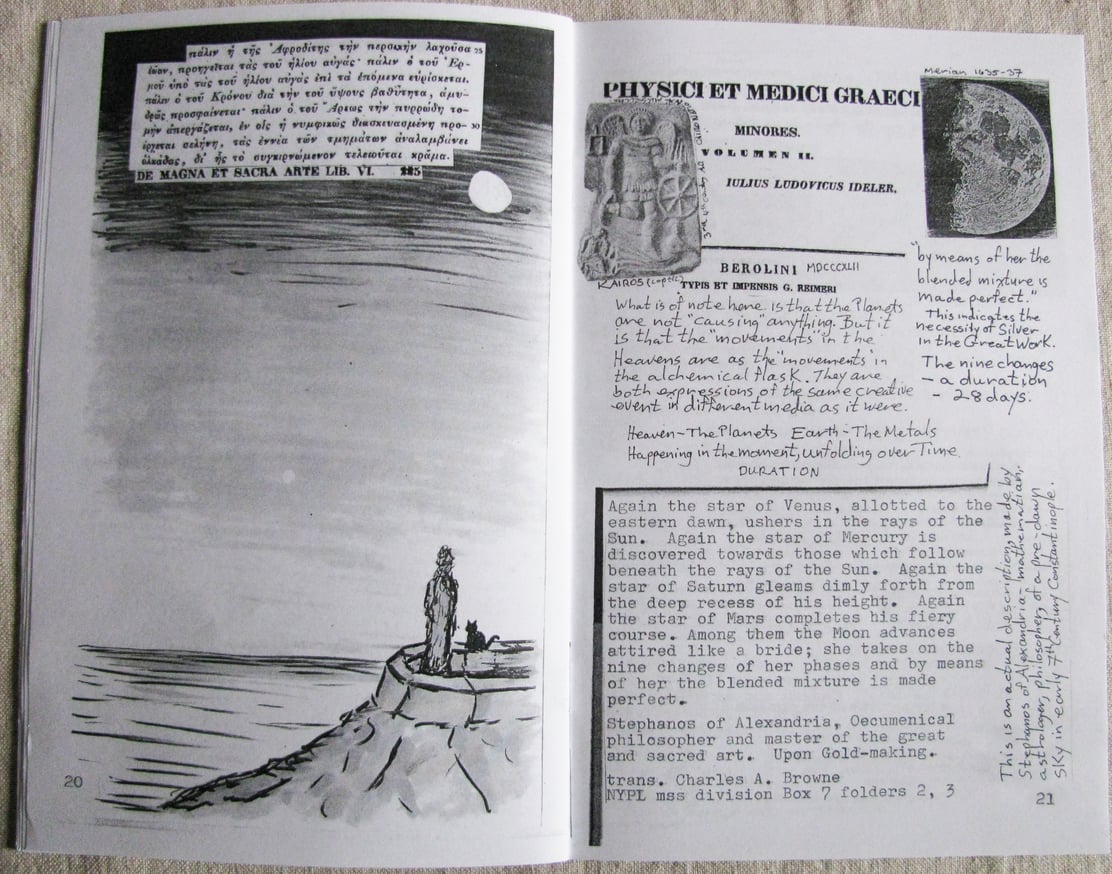 πάλιν ἡ τῆς Ἀφροδίτης τὴν περσικὴν λαχοῦσα 25
ἑῴαν, προηγεῖται τὰς τοῦ ἡλίου αὐγάς· πάλιν ὁ τοῦ Ἑρ-
μοῦ ὑπὸ τὰς τοῦ ἡλίου αὐγὰς ἐπὶ τὰ ἑπόμενα εὑρίσκεται.
πάλιν ὁ τοῦ Κρόνου διὰ τὴν τοῦ ὕψους βαθύτητα, ἀμυ-
δρῶς προσφαίνεται· πάλιν ὁ τοῦ Ἄρεως τὴν πυρρώδη το-
μὴν ἀπεργάζεται, ἐν οἷς ἡ νυμφικῶς διασκευασμένη προ- 30
έρχεται σελήνη, τὰς ἐννέα τῶν τμημάτων ἀναλαμβάνει
ὁλκάδας, δι' ἧς τὸ συγκιρνώμενον τελειοῦται κρᾶμα.
DE MAGNA ET SACRA ARTE LIB. VI. 225
20
Merian 1635-37
PHYSICI ET MEDICI GRAECI
MINORES.
VOLUMEN II.
IULIUS LUDOVICUS IDELER.
BEROLINI MDCCCXLII
KAIROS (coptic)
TYPIS ET IMPENSIS G. REIMERI
What is of note here is that the Planets
are not "causing" anything. But it
is that the "movements" in the
Heavens are as the "movements" in
the alchemical flask. They are
both expressions of the same creative
event in different media as it were.
Heaven-The Planets Earth-The Metals
Happening in the moment, unfolding over Time.
DURATION
"by means of her the
blended mixture is
made perfect."
This indicates the
necessity of Silver
in the Great Work.
The nine changes
- a duration
- 28 days.
Again the star of Venus, allotted to the
eastern dawn, ushers in the rays of the
Sun. Again the star of Mercury is
discovered towards those which follow
beneath the rays of the Sun. Again the
star of Saturn gleams dimly forth from
the deep recess of his height. Again
the star of Mars completes his fiery
course. Among them the Moon advances
attired like a bride; she takes on the
nine changes of her phases and by means
of her the blended mixture is made
perfect.
Stephanos of Alexandria, Oecumenical
philosopher and master of the great
and sacred art. Upon Gold-making.
trans. Charles A. Browne
NYPL mss division Box 7 folders 2, 3
This is an actual description, made by
Stephanos of Alexandria-mathematician,
astrologer, philosopher, of a pre-dawn
sky in early 7th Century Constantinople.
21